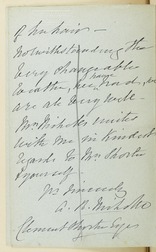 of her hair —
Notwithstanding the
very changeable
weather, we
are all very well.
Mrs Nicholls unites
with me in kindest
regards to Mrs Shorter
& yourself
Yrs sincerely
A. B. Nicholls
Clement Shorter Esqre